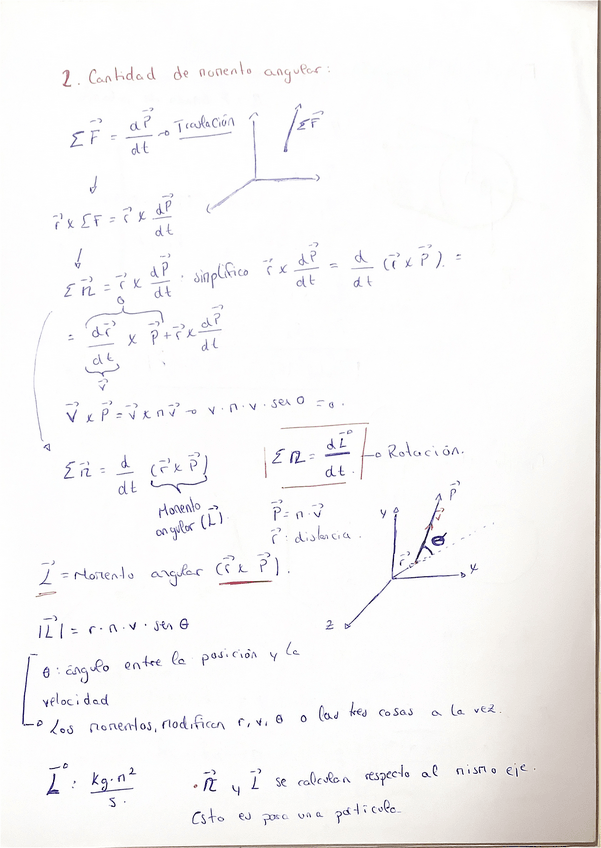 2. Cantidad de momento angular:
ΣF⃗ = dP⃗/dt → Traslación
ΣF⃗
↓
r⃗ x ΣF = r⃗ x dP⃗/dt
↓
ΣM⃗ = r⃗ x dP⃗/dt · simplifico r⃗ x dP⃗/dt = d/dt (r⃗ x P⃗) =
0
= dr⃗/dt x P⃗ + r⃗ x dP⃗/dt
v⃗
V⃗ x P⃗ = v⃗ x m v⃗ → v · m · v · sen 0 = 0.
ΣM⃗ = d/dt (r⃗ x P⃗)
ΣM = dL⃗/dt. → Rotación.
Momento
angular (L⃗).
P⃗ = m · v⃗
r⃗ : distancia.
y
P⃗
v⃗
θ
r⃗
x
z
L⃗ = Momento angular (r⃗ x P⃗).
|L⃗| = r · m · v · sen θ
θ : ángulo entre la posición y la
velocidad
→ Los momentos, modifican r, v, θ o las tres cosas a la vez.
L⃗ : kg·m²/s.
· M⃗ y L⃗ se calculan respecto al mismo eje.
Esto es para una partícula.